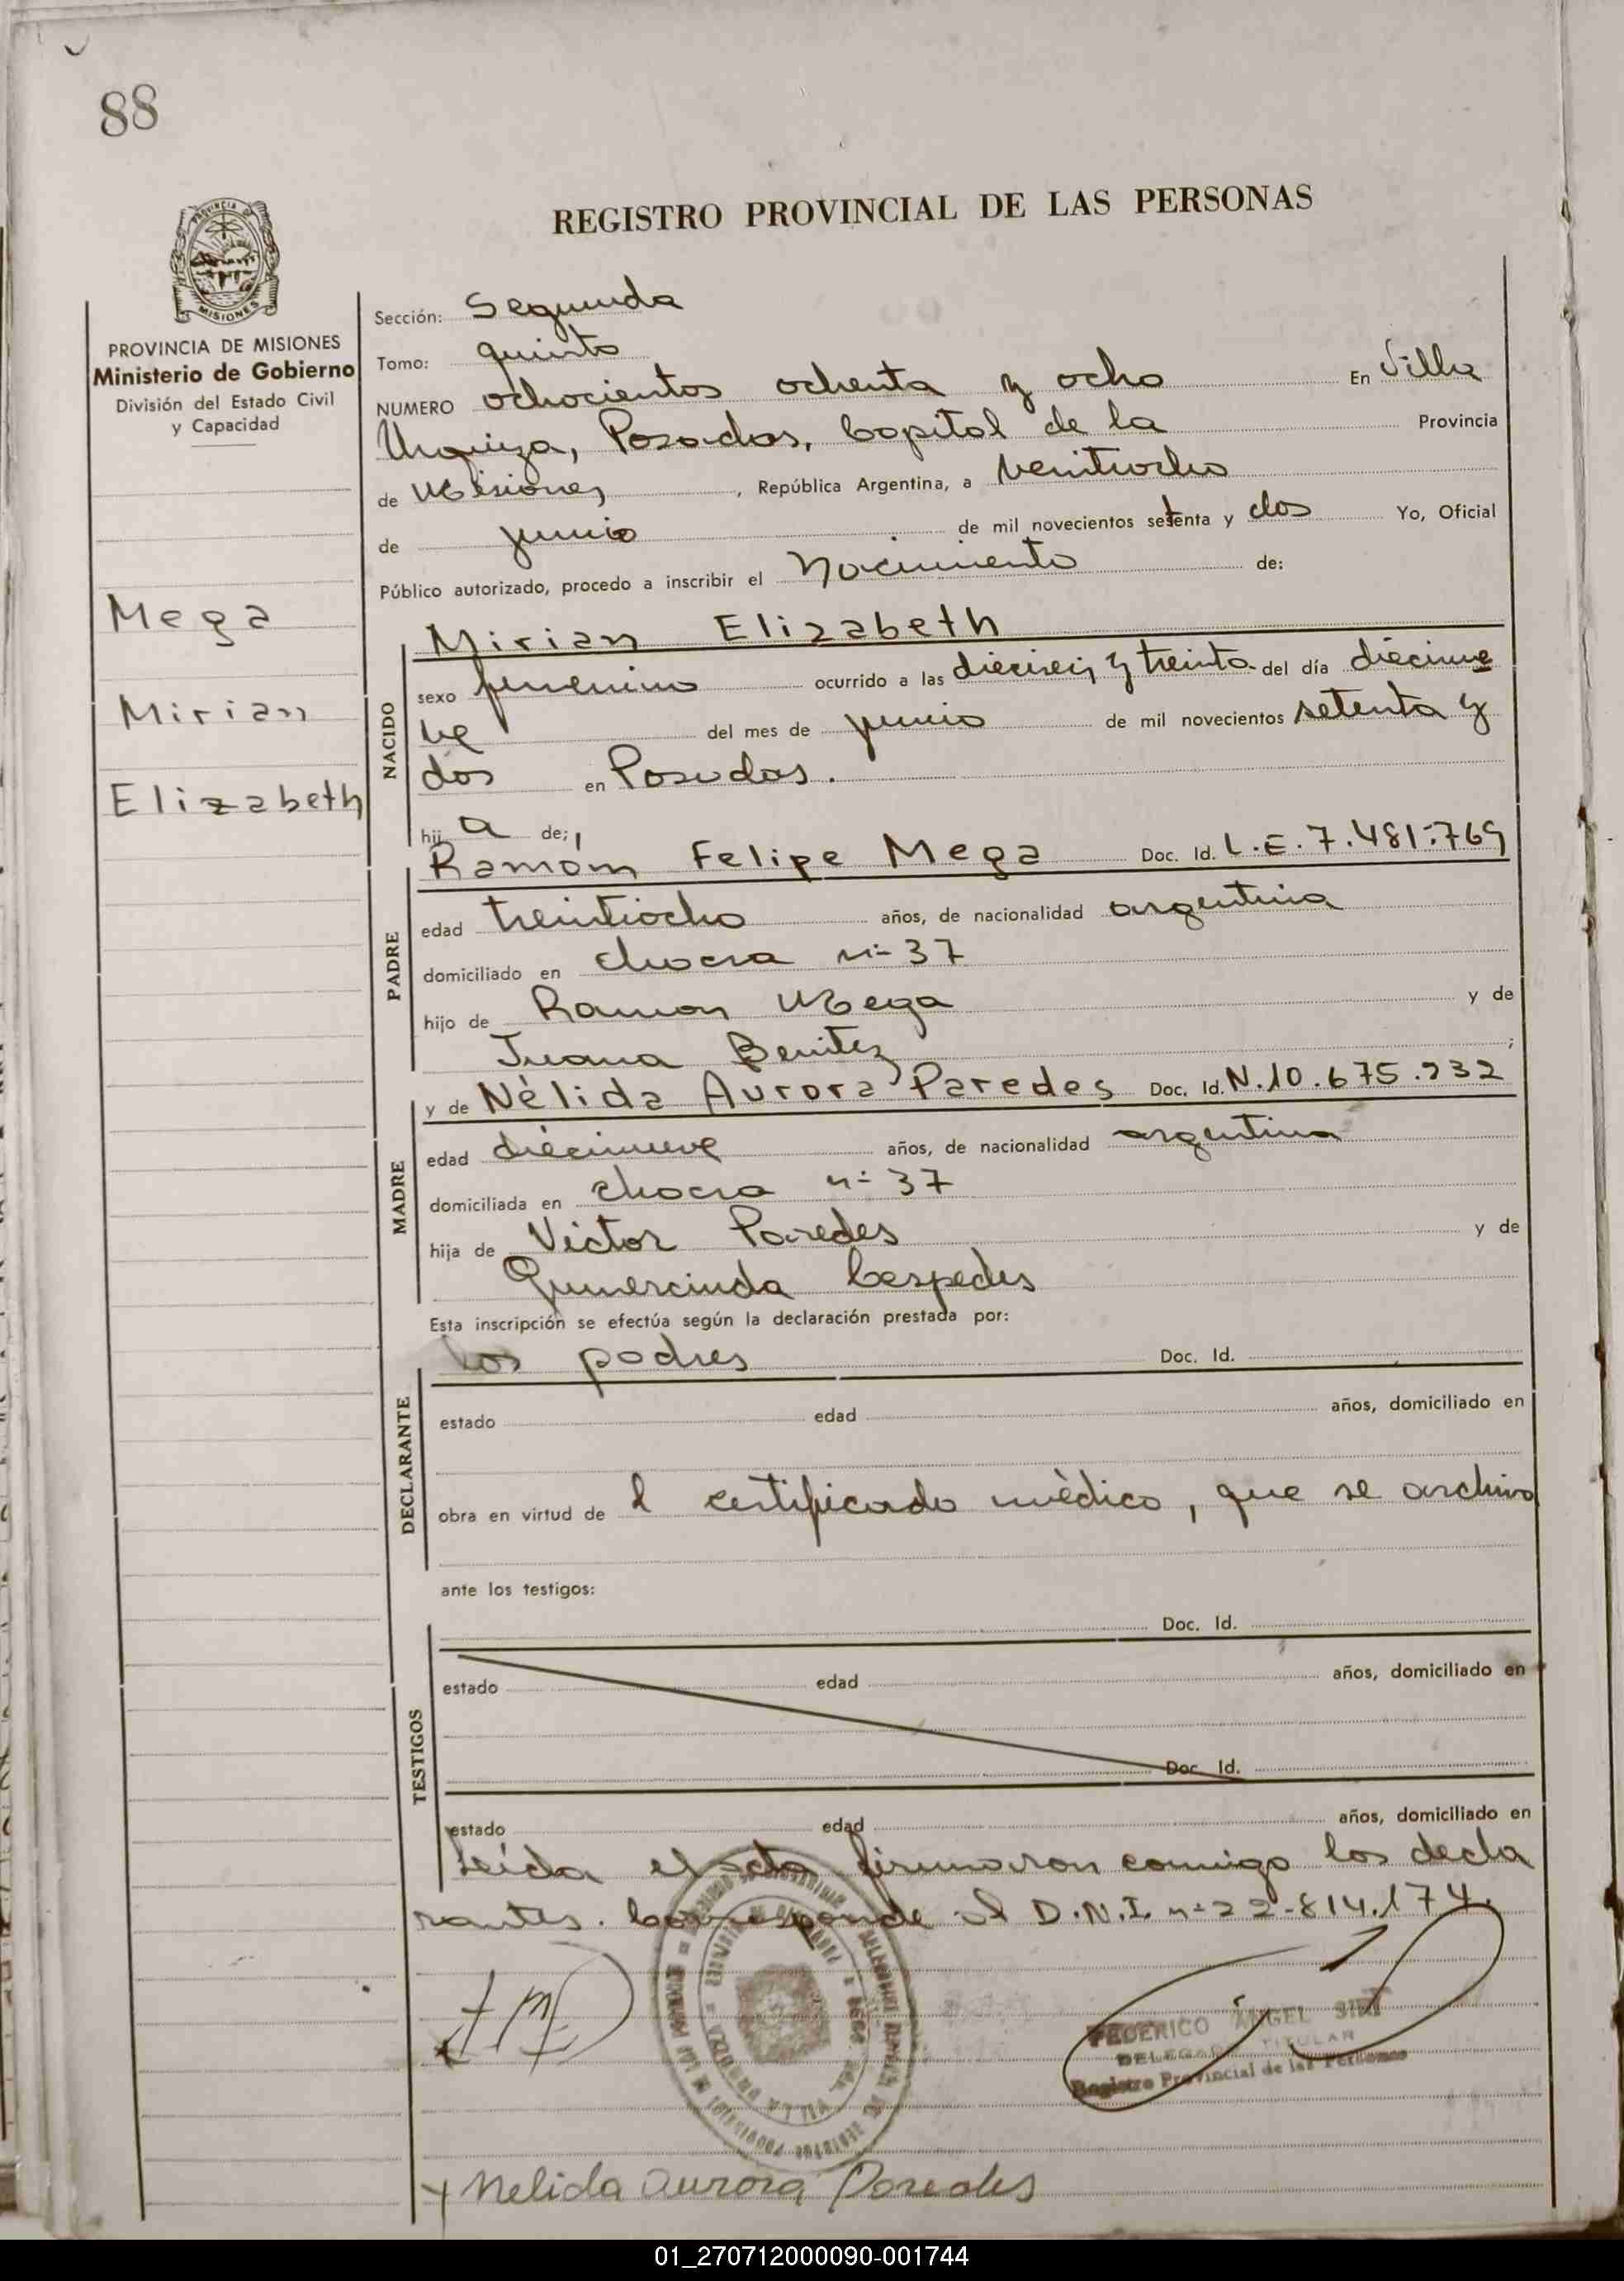 88
REGISTRO PROVINCIAL DE LAS PERSONAS
PROVINCIA DE MISIONES
MISIONES
PROVINCIA DE MISIONES
Ministerio de Gobierno
División del Estado Civil
y Capacidad
Mega
Mirian
Elizabeth
Sección: Segunda
Tomo: quinto
NUMERO ochocientos ochenta y ocho En Villa
Urquiza, Posadas, Capital de la Provincia
de Misiones, República Argentina, a veintiocho
de junio de mil novecientos setenta y dos Yo, Oficial
Público autorizado, procedo a inscribir el Nacimiento de:
NACIDO
Mirian Elizabeth
sexo femenino ocurrido a las dieciseis y treinta del día diecinue
ve del mes de junio de mil novecientos setenta y
dos en Posadas.
hij a de;
PADRE
Ramón Felipe Mega Doc. Id. L.E. 7.481.769
edad treintiocho años, de nacionalidad argentina
domiciliado en chacra nº 37
hijo de Ramon Mega y de
Juana Benitez ;
MADRE
y de Nélida Aurora Paredes Doc. Id. N.10.675.232
edad diecinueve años, de nacionalidad argentina
domiciliada en chacra nº 37
hija de Victor Paredes y de
Gumercinda Cespedes
Esta inscripción se efectúa según la declaración prestada por:
DECLARANTE
los padres Doc. Id.
estado edad años, domiciliado en
obra en virtud de l certificado médico, que se archiva
ante los testigos:
TESTIGOS
Doc. Id.
estado edad años, domiciliado en
Doc. Id.
estado edad años, domiciliado en
Leída el acta firmaron conmigo los decla
rantes. Corresponde al D.N.I. nº 22.814.174.
FEDERICO ANGEL
DELEGADO TITULAR
Registro Provincial de las Personas
VILLA URQUIZA
Nelida Aurora Paredes
01_270712000090-001744